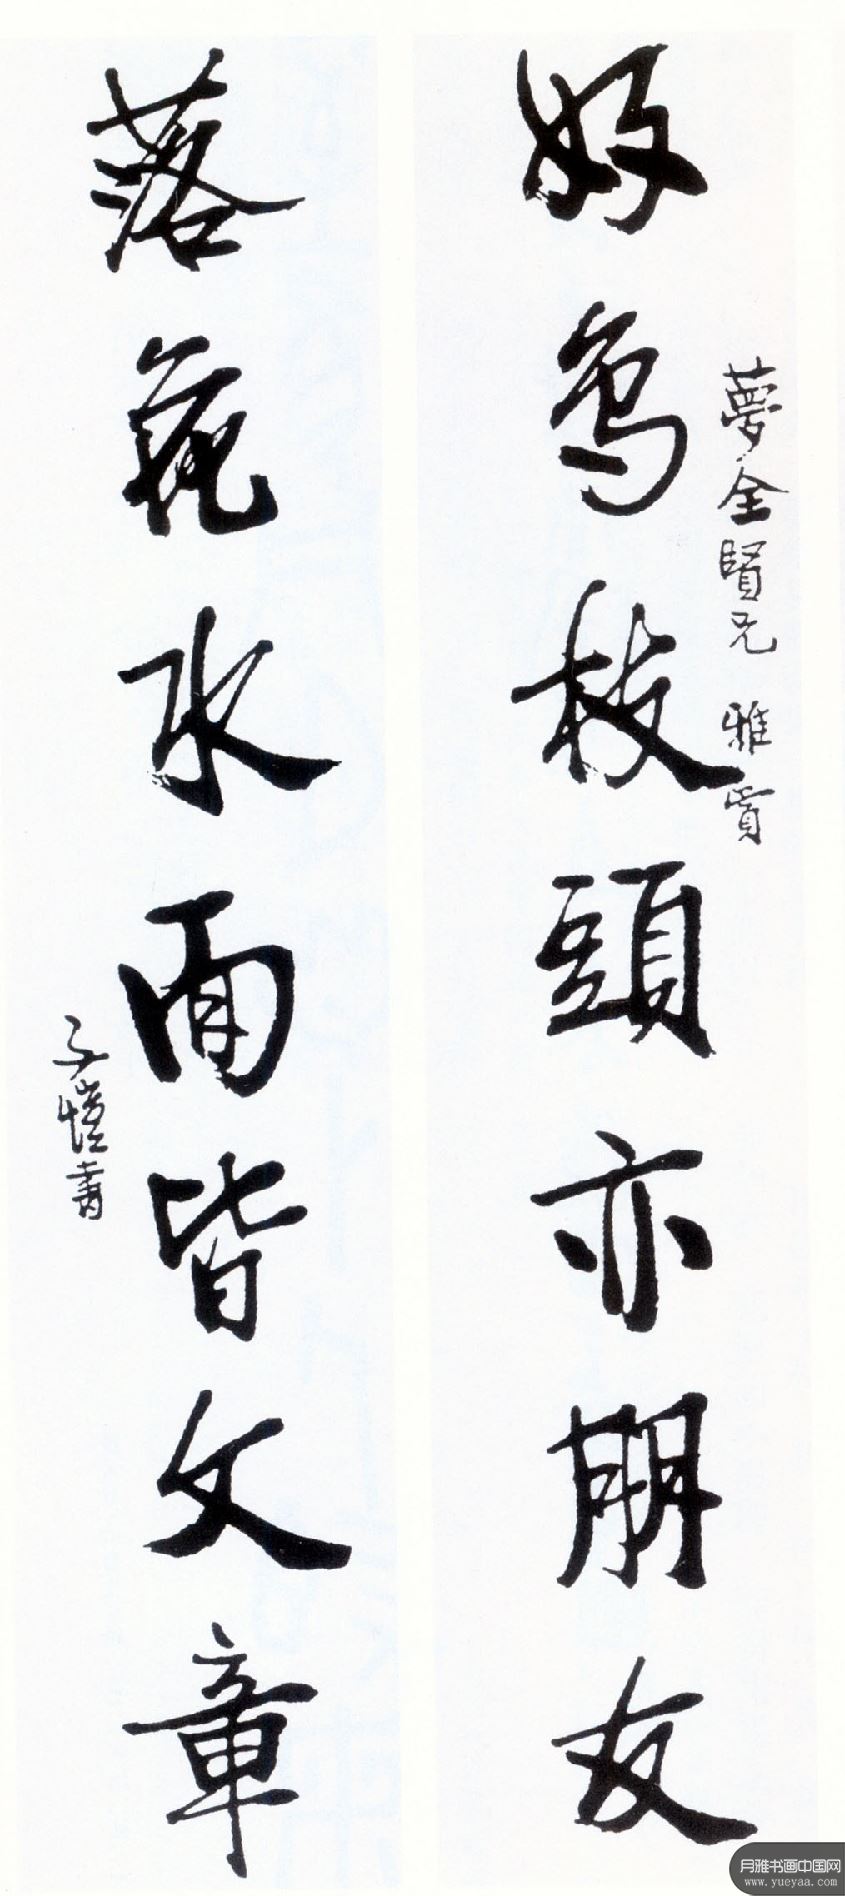 夢全賢兄 雅賞
好鳥枝頭亦朋友
落花水面皆文章
子愷書
月雅书画中国网
www.yueyaa.com